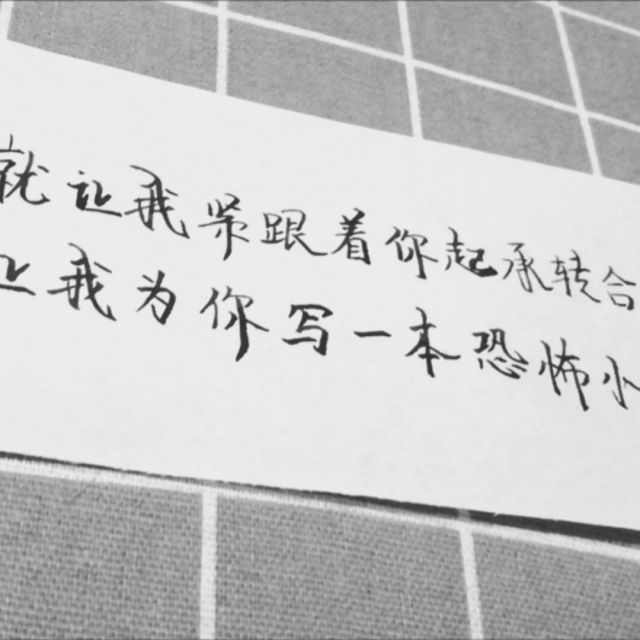 就让我紧跟着你起承转合
让我为你写一本恐怖小